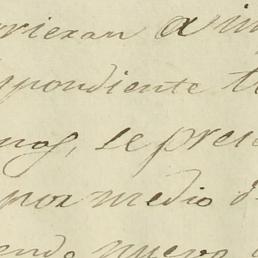 rriezan a im
spondiente t
nos, se prese
por medio d
endo nuevo